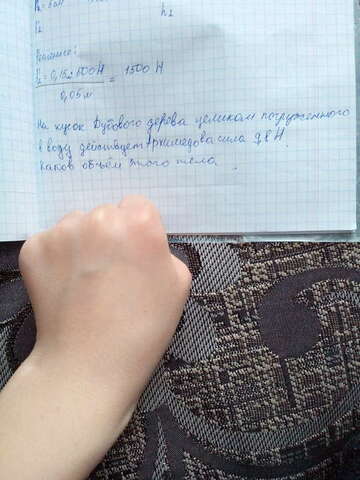 h₂
Решение:
F₂ = 0,15м·500Н = 1500 Н
0,05м
На кусок Дубового дерева целиком погруженного
в воду действует архимедова сила 98 Н.
каков объём этого тела.